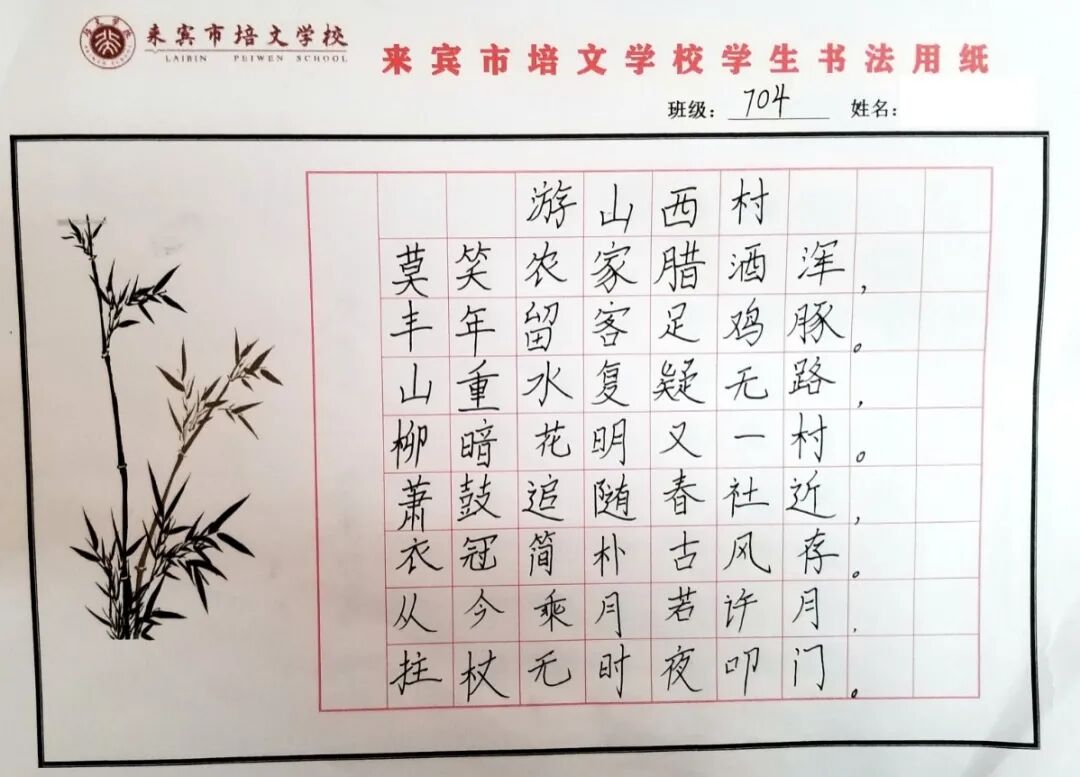 来宾市培文学校
LAIBIN PEIWEN SCHOOL
来宾市培文学校学生书法用纸
班级：704 姓名：
游山西村
莫笑农家腊酒浑，
丰年留客足鸡豚。
山重水复疑无路，
柳暗花明又一村。
萧鼓追随春社近，
衣冠简朴古风存。
从今乘月若许月，
拄杖无时夜叩门。